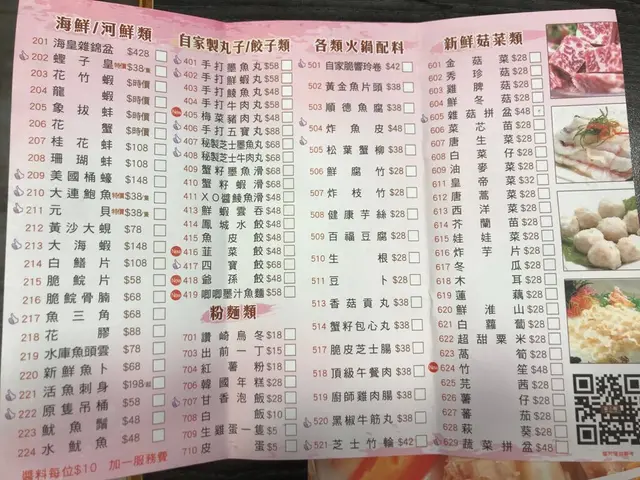 海鮮/河鮮類
201 海皇雜錦盆 $428
202 蟶子皇 特價$38/隻
203 花竹蝦 $時價
204 龍蝦 $時價
205 象拔蚌 $時價
206 花蟹 $時價
207 桂花蚌 $108
208 珊瑚蚌 $108
209 美國桶蠔 $148
210 大連鮑魚 特價$38/隻
211 元貝 特價$38/隻
212 黃沙大蜆 $78
213 大海蝦 $148
214 白鱔片 $108
215 脆鯇片 $58
216 脆鯇骨腩 $68
217 魚三角 $68
218 花膠 $88
219 水庫魚頭雲 $78
220 新鮮魚卜 $68
221 活魚刺身 $198/起
222 原隻吊桶 $58
223 魷魚鬚 $48
224 水魷魚 $48
醬料每位$10 加一服務費
自家製丸子/餃子類
401 手打墨魚丸 $58
402 手打鮮蝦丸 $58
403 手打鯪魚丸 $48
404 手打牛肉丸 $58
405 梅菜豬肉丸 $48
406 手打五寶丸 $88
407 秘製芝士墨魚丸 $68
408 秘製芝士牛肉丸 $68
409 蟹籽墨魚滑 $68
410 蟹籽蝦滑 $68
411 XO醬鯪魚滑 $48
413 鮮蝦雲吞 $48
414 鳳城水餃 $48
415 魚皮餃 $48
416 韮菜餃 $48
417 四寶餃 $68
418 爺孫餃 $48
419 唧唧墨汁魚麵 $58
粉麵類
701 讚岐烏冬 $18
703 出前一丁 $15
704 紅薯粉 $18
706 韓國年糕 $28
707 甘香泡飯 $28
708 白飯 $10
709 生雞蛋一隻 $5
710 皮蛋 $5
各類火鍋配料
501 自家脆響玲卷 $42
502 黃金魚片頭 $38
503 順德魚腐 $38
504 炸魚皮 $48
505 松葉蟹柳 $38
506 鮮腐竹 $28
507 炸枝竹 $28
508 健康芋絲 $28
509 百福豆腐 $28
510 生根 $28
511 豆卜 $28
513 香菇貢丸 $38
514 蟹籽包心丸 $38
517 脆皮芝士腸 $38
518 頂級午餐肉 $38
519 廚師雞肉腸 $38
520 黑椒牛筋丸 $38
521 芝士竹輪 $42
新鮮菇菜類
601 金菇 $28
602 秀珍菇 $28
603 雞脾菇 $28
604 鮮冬菇 $28
605 雜菇拼盆 $48
606 菜芯苗 $28
607 唐生菜 $28
608 白菜仔 $28
609 油麥菜 $28
611 皇帝菜 $32
612 唐蒿菜 $28
613 西洋菜 $28
614 芥蘭苗 $28
615 娃娃菜 $28
616 炸芋片 $28
617 冬瓜 $28
618 木耳 $28
619 蓮藕 $28
620 鮮淮山 $28
621 白蘿蔔 $28
622 超甜粟米 $28
623 萵筍 $28
624 竹笙 $48
625 芫茜 $28
626 薯仔 $28
627 蕃茄 $28
628 萩葵 $28
629 蔬菜拼盆 $48